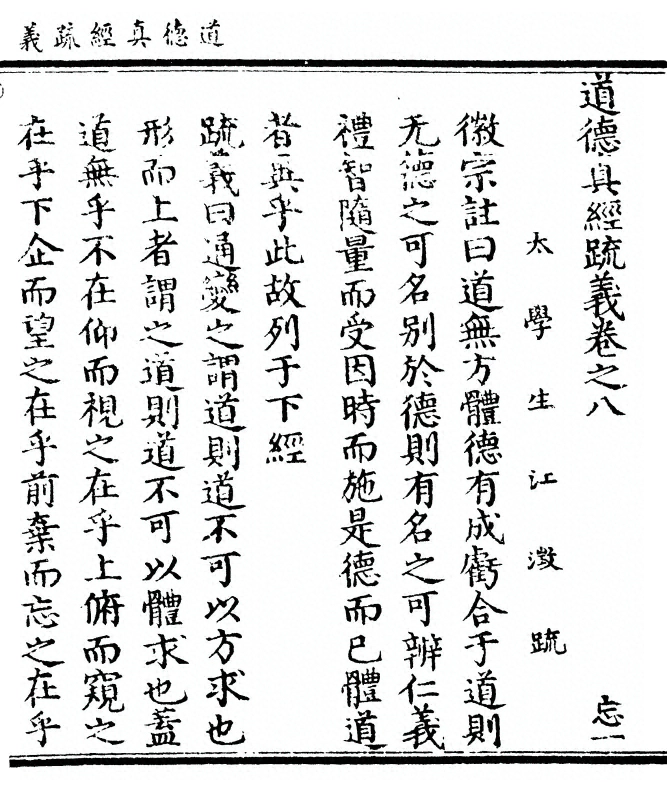 道德真經疏義
道德真經疏義卷之八
忘一
太學生江澂疏
徽宗註曰道無方體德有成虧合于道則
无德之可名別於德則有名之可辨仁義
禮智隨量而受因時而施是德而已體道
者異乎此故列于下經
疏義曰通變之謂道則道不可以方求也
形而上者謂之道則道不可以體求也蓋
道無乎不在仰而視之在乎上俯而窺之
在乎下企而望之在乎前棄而忘之在乎